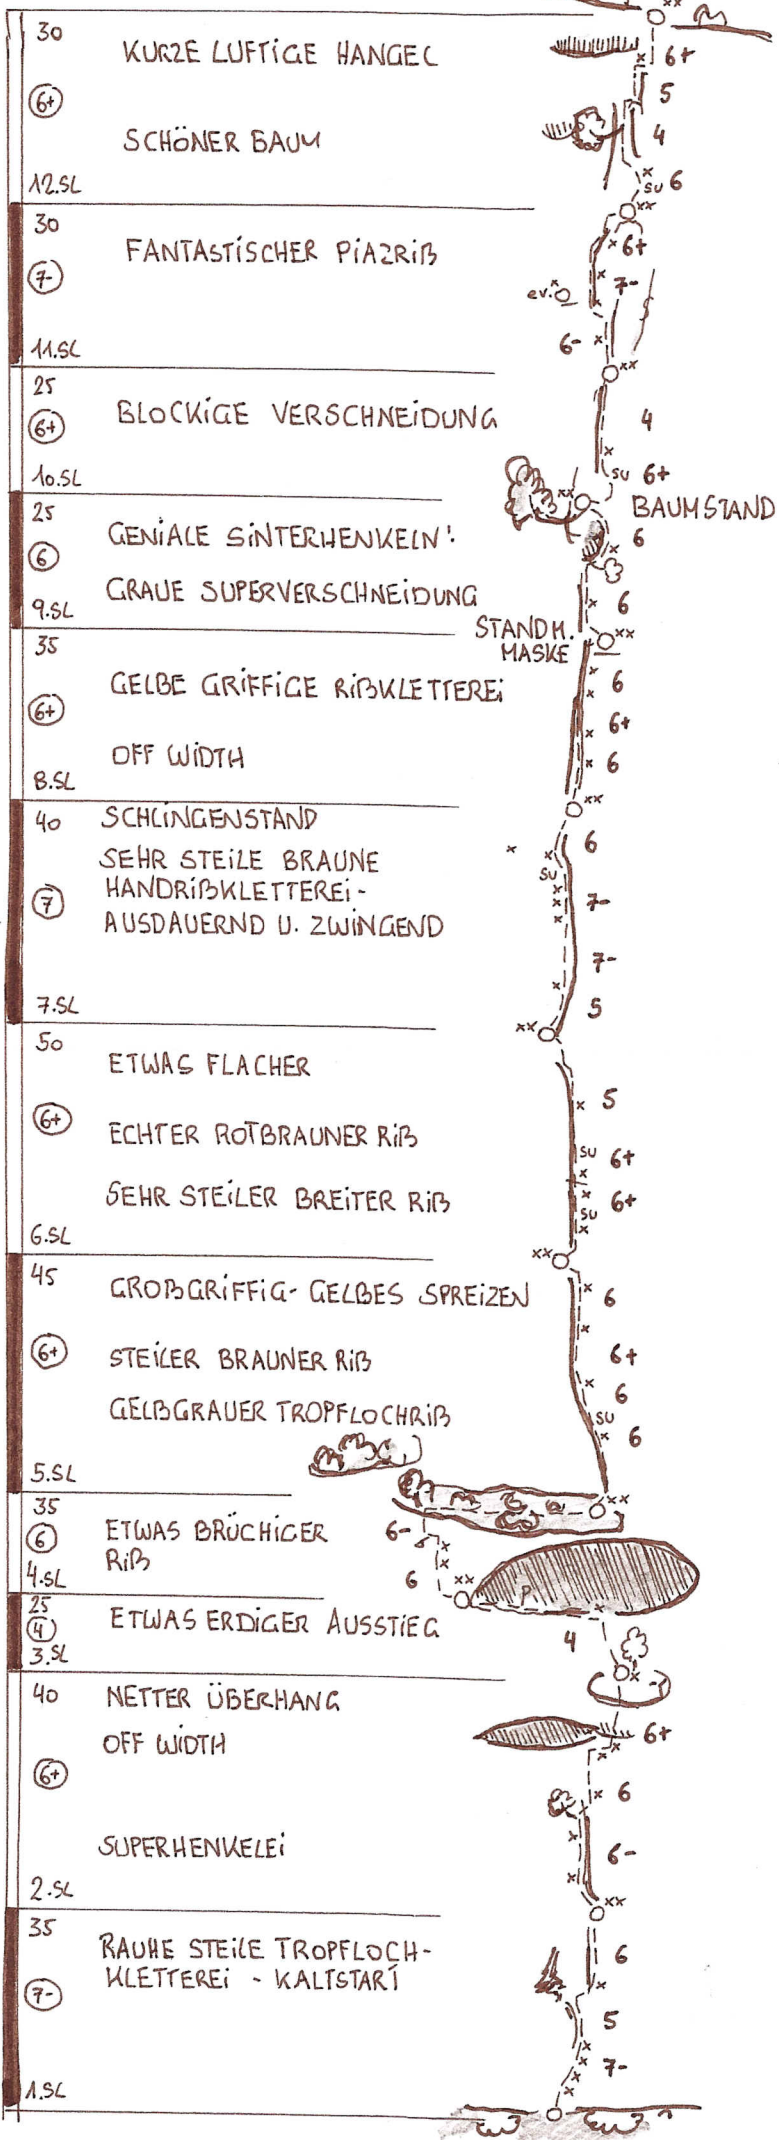 xx
30
KURZE LUFTIGE HANGEL
6+
5
6+
SCHÖNER BAUM
4
x
su 6
12.SL
xx
30
FANTASTISCHER PIAZRIß
6+
7-
7-
ev.
6-
11.SL
xx
25
BLOCKIGE VERSCHNEIDUNG
4
6+
su 6+
10.SL
xx
BAUMSTAND
25
GENIALE SINTERHENKELN!
6
6
GRAUE SUPERVERSCHNEIDUNG
6
9.SL
STANDM.
MASKE
xx
35
GELBE GRIFFIGE RIßKLETTEREI
6
6+
6+
OFF WIDTH
6
8.SL
xx
40
SCHLINGENSTAND
6
SEHR STEILE BRAUNE
su
HANDRIßKLETTEREI-
7
7-
AUSDAUERND U. ZWINGEND
7-
5
7.SL
xx
50
ETWAS FLACHER
5
6+
ECHTER ROTBRAUNER RIß
su 6+
SEHR STEILER BREITER RIß
6+
su
6.SL
xx
45
GROßGRIFFIG- GELBES SPREIZEN
6
6+
STEILER BRAUNER RIß
6+
6
GELBGRAUER TROPFLOCHRIß
su
6
5.SL
xx
35
6
ETWAS BRÜCHIGER
6-
RIß
4.SL
6
xx
P
25
4
ETWAS ERDIGER AUSSTIEG
4
3.SL
40
NETTER ÜBERHANG
OFF WIDTH
6+
6+
6
SUPERHENKELEI
6-
2.SL
xx
35
RAUHE STEILE TROPFLOCH-
6
KLETTEREI - KALTSTART
7-
5
7-
1.SL